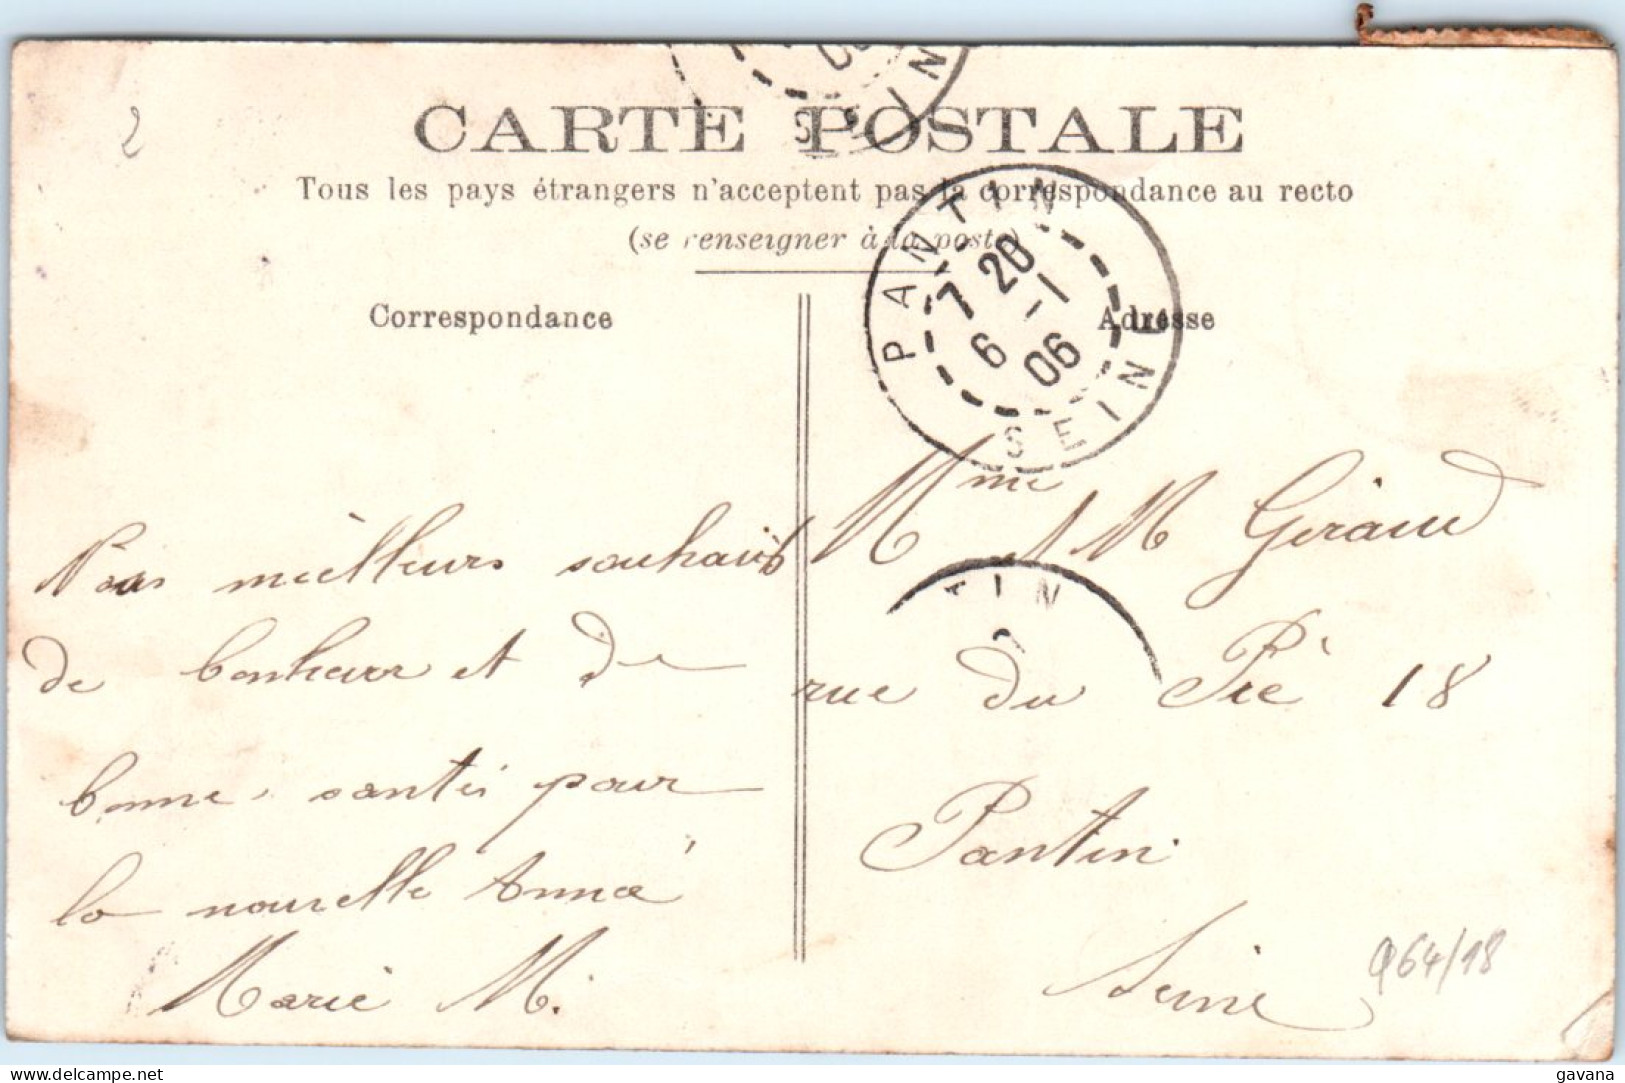 2
CARTE POSTALE
Tous les pays étrangers n'acceptent pas la correspondance au recto
(se renseigner à la poste)
PANTIN
7 20
6 -1
06
SEINE
Correspondance
Adresse
Nos meilleurs souhaits
de bonheur et de
bonne santé pour
la nouvelle Année
Marie M.
Mme et M Géraud
rue du Pré 18
Pantin
Seine
TIN
Q64/18
delcampe.net
gavana